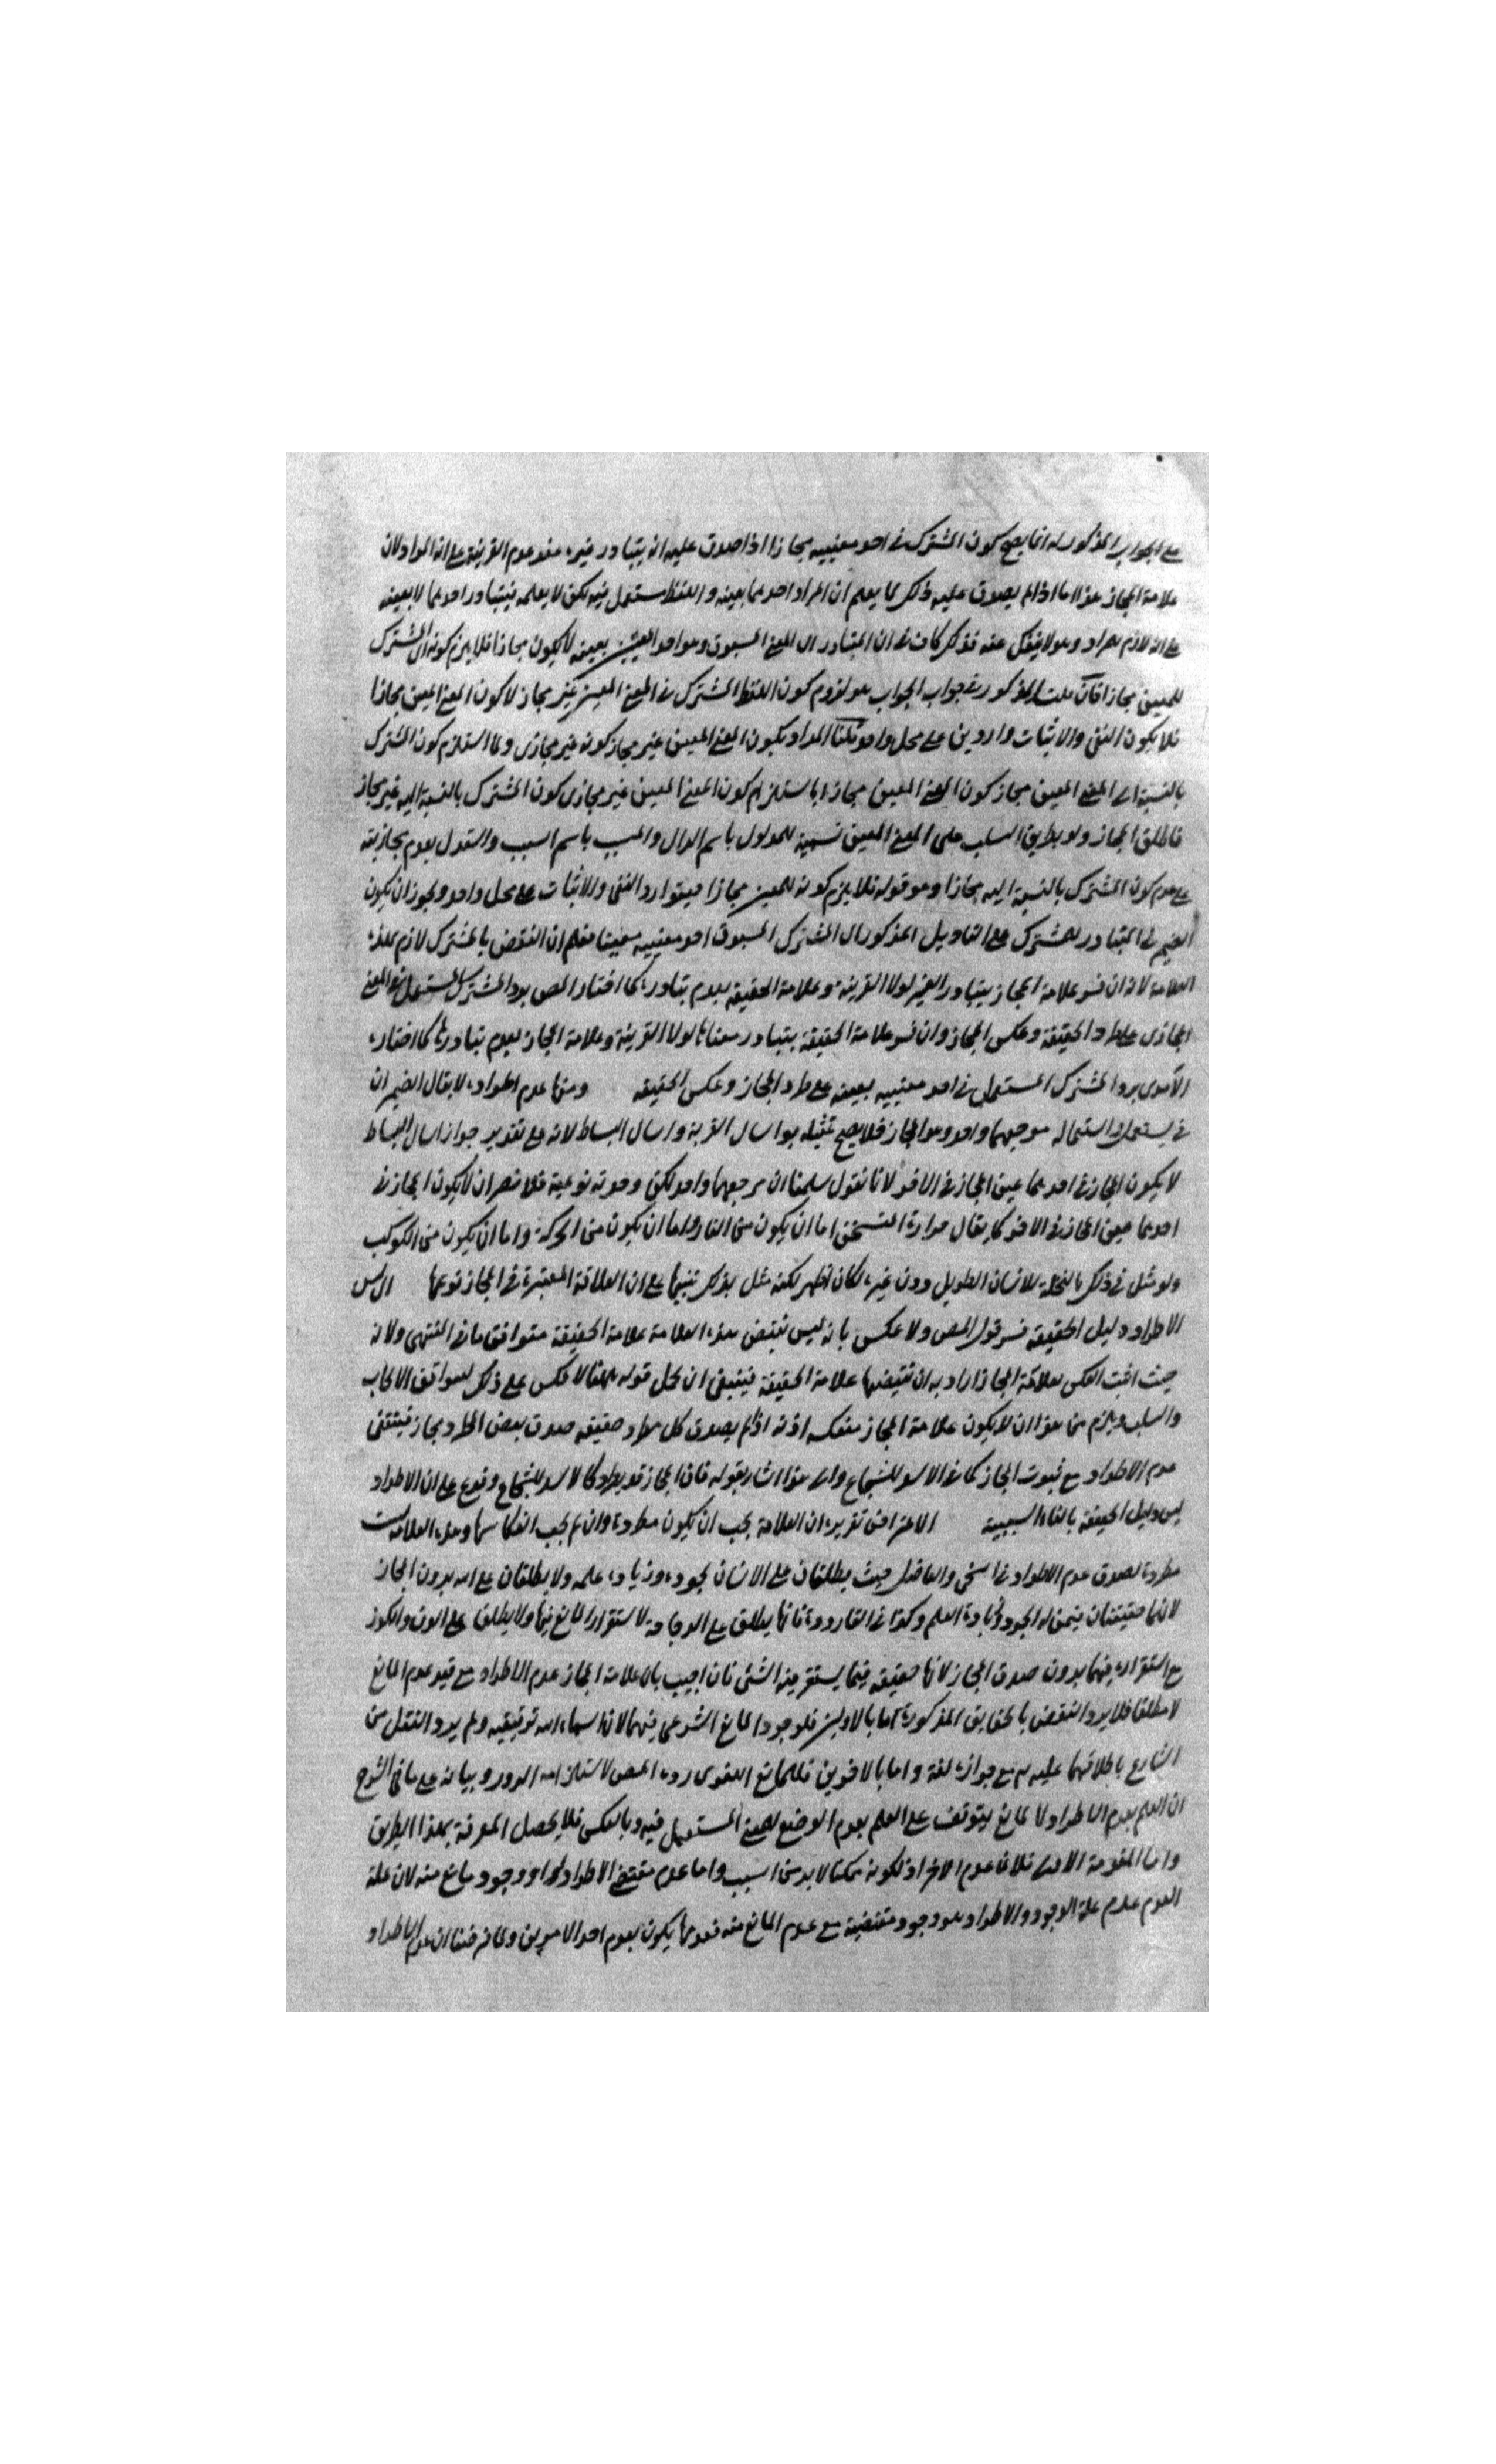 على الجواب المذكور انه انما يصح كون المشترك في احد معنييه مجازا اذا صدق عليه انه يتبادر غيره عند عدم القرينة على انه المراد لان
علامة المجاز هذا اما اذا لم يصدق عليه ذلك لما يعلم ان المراد احدهما بعينه واللفظ مستعمل فيه لكن لا يعلمه فيتبادر احدهما لا بعينه
على انه لازم المراد وهو لا ينفك عنه فذلك كاف في ان المتبادر الى المعنى المسبوق وهو احد المعنيين بعينه لا يكون مجازا فلا يلزم كونه اى المشترك
للمعين مجازا فان قلت المذكور في جواب الجواب هو لزوم كون اللفظ المشترك في المعنى المعين غير مجاز لا كون المعنى المعين مجازا
فلا يكون النفي والاثبات واردين على محل واحد قلنا المراد بكون المعنى المعين غير مجاز كونه غير مجازى ولما استلزم كون المشترك
بالنسبة الى المعنى المعين مجاز كون المعنى المعين مجازا باستلزام كون المعنى المعين غير مجازى كون المشترك بالنسبة اليه غير مجاز
فاطلق المجاز ولو بطريق السلب على المعنى المعين تسمية للمدلول باسم الدال والمسبب باسم السبب واستدل بعدم مجازيته
على عدم كون المشترك بالنسبة اليه مجازا وهو قوله فلا يلزم كونه للمعين مجازا فيتوارد النفي والاثبات على محل واحد ويجوز ان يكون
الضمير في المتبادر للمشترك على التاويل المذكور اى المشترك المسبوق احد معنييه معينا فعلم ان النقض بالمشترك لازم لهذه
العلامة لانه ان فسر علامة المجاز بتبادر الغير لولا القرينة وعلامة الحقيقة بعدم تبادره كما اختاره المص يرد المشترك المستعمل في المعنى
المجازى على طرد الحقيقة وعكس المجاز وان فسر علامة الحقيقة بتبادر معناها لولا القرينة وعلامة المجاز بعدم تبادرها كما اختاره
الآمدى يرد المشترك المستعمل في احد معنييه بعينه على طرد المجاز وعكس الحقيقة ومنها عدم اطراده لا يقال الضمير ان
في يستعمل واستعماله مرجعهما واحد وهو المجاز فلا يصح تمثيله بو اسال القرية واسال البساط لانه على تقدير جواز اسال البساط
لا يكون المجاز في احدهما عين المجاز في الآخر لانا نقول سلمنا ان مرجعهما واحد لكن وحدته نوعية فلا ضير ان لا يكون المجاز في
احدهما عين المجاز في الآخر كما يقال حرارة التسخن اما ان يكون من النار واما ان يكون من الحركة واما ان يكون من الكوكب
ولو مثل في ذلك بالنخلة للانسان الطويل دون غيره لكان اظهر لكنه مثل بذلك تنبيها على ان العلاقة المعتبرة في المجاز نوعها اى ليس
الاطراد دليل الحقيقة فسر قول المص ولا عكس بانه ليس نقيض هذه العلامة علامة الحقيقة متوافق ما في المنتهى ولانه
حيث اثبت العكس لعلاقة المجاز اراد به ان نقيضها علامة الحقيقة فينبغي ان يحمل قوله ههنا لا عكس على ذلك ليتوافق الايجاب
والسلب ويلزم من هذا ان لا يكون علامة المجاز منعكسه اذ لم يصدق كل مطرد حقيقه صدق بعض المطرد مجاز فينتفي
عدم الاطراد مع ثبوت المجاز كما في الاسد للشجاع والى هذا اشار بقوله فان المجاز قد يطرد كالاسد للشجاع وفرع على ان الاطراد
ليس دليل الحقيقة بالفاء السببية الاعتراض تقريره ان العلامة يجب ان يكون مطردة وان لم يجب انعكاسها وهذه العلامة ليست
مطردة لصدق عدم الاطراد في السخي والفاضل حيث يطلقان على الانسان لجوده وزيادة علمه ولا يطلقان على الله بدون المجاز
لانهما حقيقتان فيمن له الجود وزيادة العلم وكذا في القارورة فانها يطلق على الزجاجة لاستقرار المائع فيها ولا يطلق على الدن والكوز
مع استقراره فيهما بدون صدق المجاز لانها حقيقة فيما يستقر فيه الشئ فان اجيب بان علامة المجاز عدم الاطراد مع قيد عدم المانع
لا مطلقا فلا يرد النقض بالحقايق المذكورة اما بالاولين فلوجود المانع الشرعى فيهما لان اسماء الله توقيفيه ولم يرد النقل من
الشارع باطلاقهما عليه مع جوازه لغة واما بالاخرين فللمانع اللغوى رده المص لاستلزامه الدور وبيانه على ما في الشرح
ان العلم بعدم الاطراد لا لمانع يتوقف على العلم بعدم الوضع للمعنى المستعمل فيه وبالعكس فلا يحصل المعرفة بهذا الطريق
واما المقدمة الاولى فلان عدم الاطراد لكونه ممكنا لا بد من السبب واما عدم مقتضى الاطراد او وجود مانع منه لان علة
العدم عدم علة الوجود والاطراد هو وجود مقتضيه مع عدم المانع منه فعدمها يكون بعدم احد الامرين ولما فرضنا ان عدم الاطراد